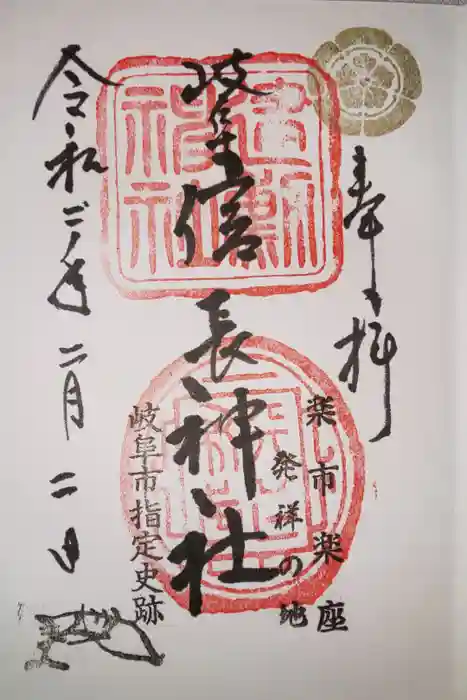 奉拝
楽市楽座
発祥の地
岐阜信長神社
建勲
神社
岐阜市指定史跡
令和二年二月二日